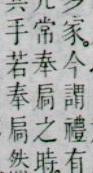 家。今謂禮有
常奉扃之時
手若奉扃然